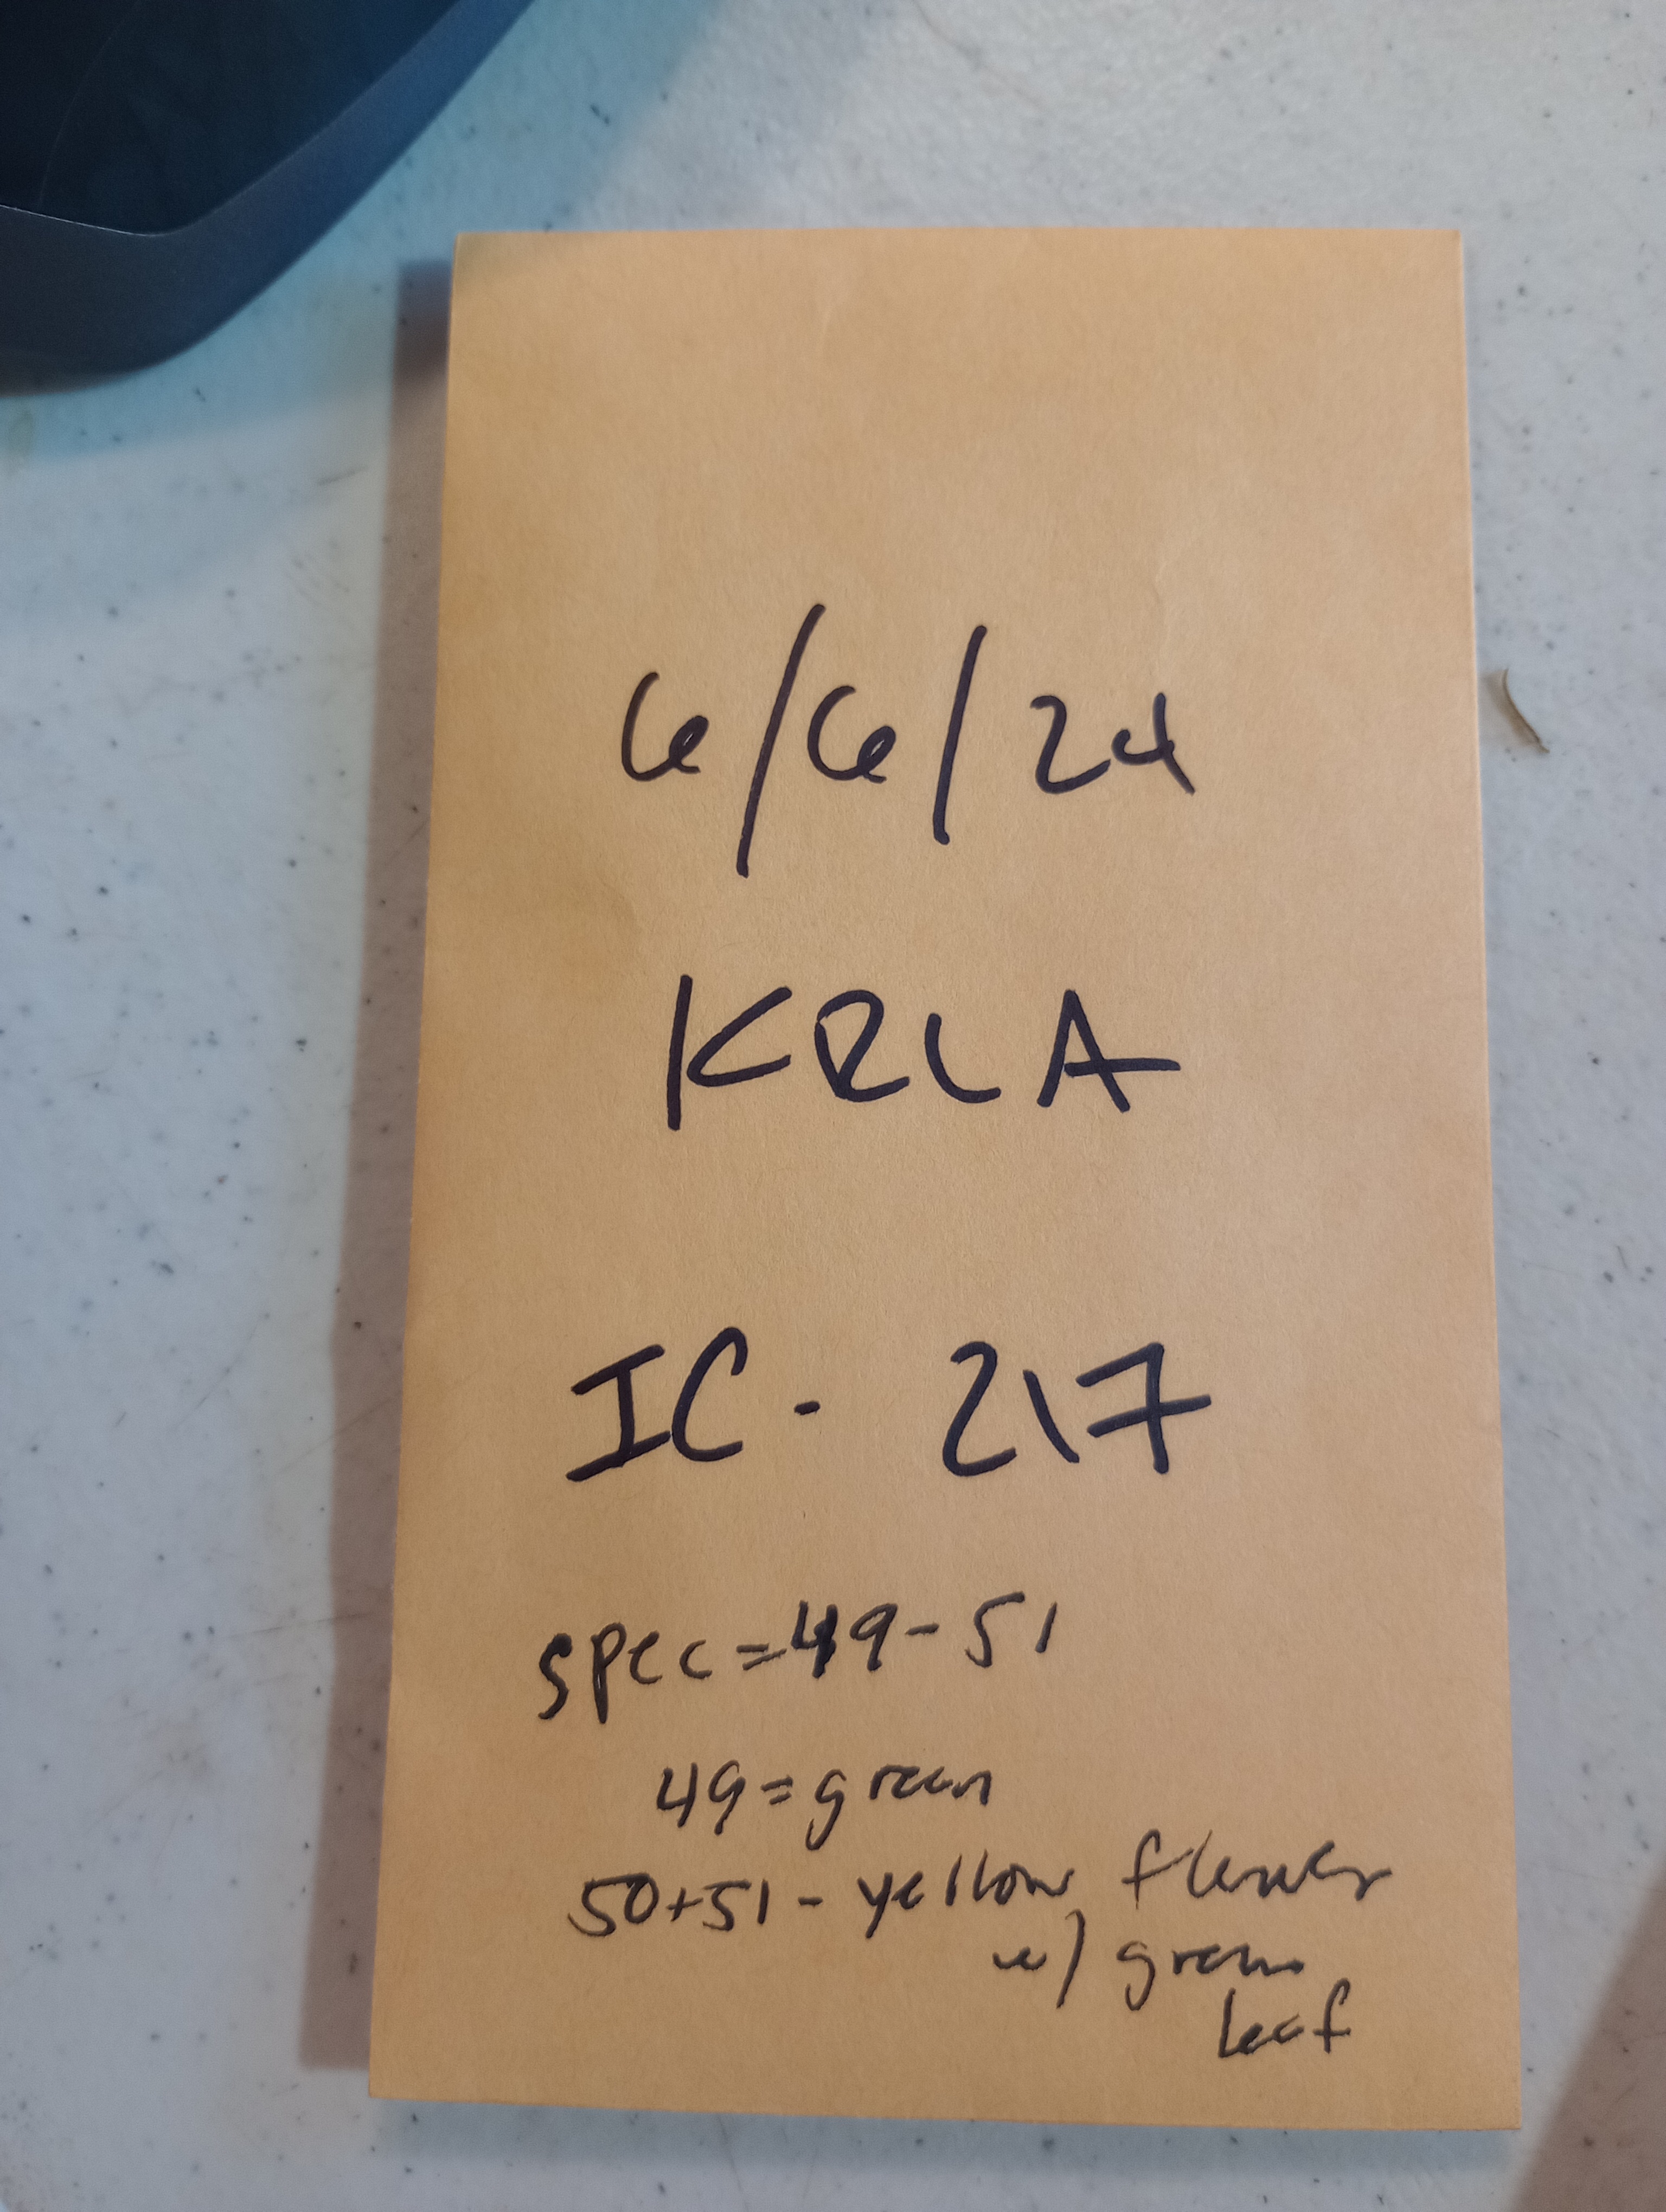 6/6/24
KRLA
IC- 217
spec=49-51
49=green
50+51-yellow flower
w/ green
leaf